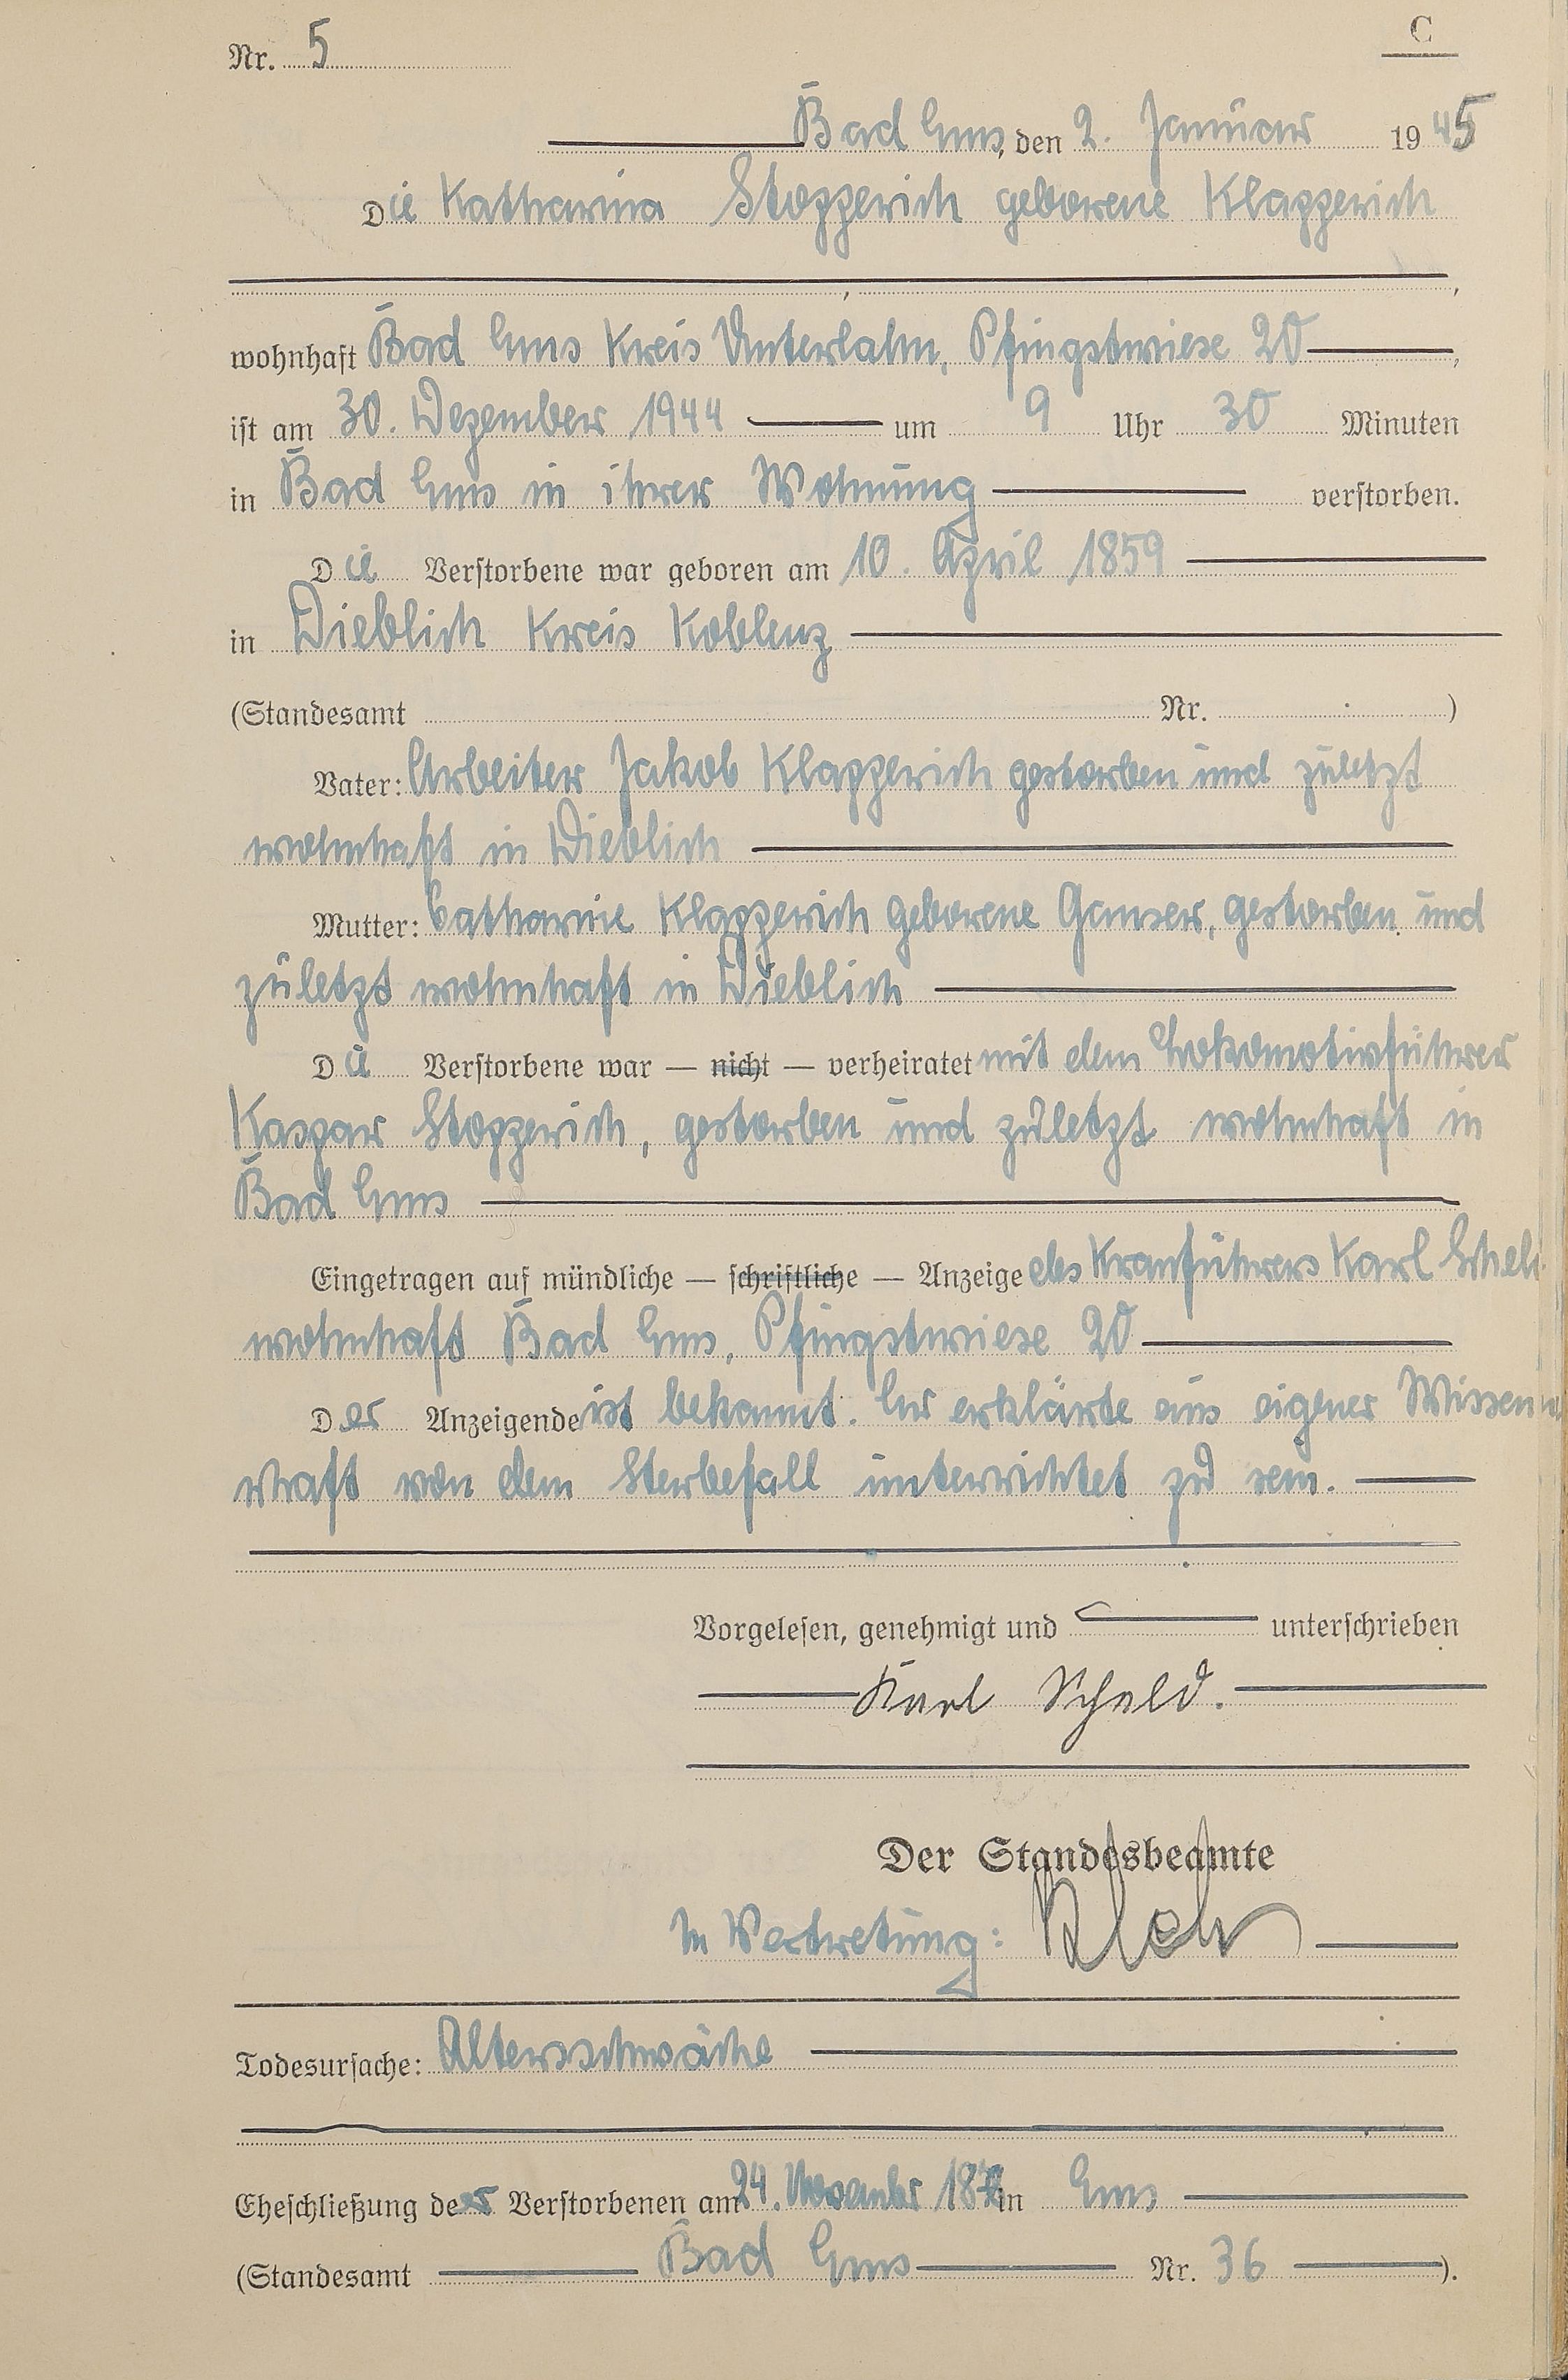 Nr. 5
C
Bad Ems, den 2. Januar 1945
Die Katharina Stopperich geborene Klapperich
wohnhaft Bad Ems Kreis Unterlahn, Pfingstwiese 20,
ist am 30. Dezember 1944 um 9 Uhr 30 Minuten
in Bad Ems in ihrer Wohnung verstorben.
Die Verstorbene war geboren am 10. April 1859
in Dieblich Kreis Koblenz
(Standesamt Nr. )
Vater: Arbeiter Jakob Klapperich gestorben und zuletzt
wohnhaft in Dieblich
Mutter: Catharine Klapperich geborene Ganser, gestorben und
zuletzt wohnhaft in Dieblich
Die Verstorbene war — nicht — verheiratet mit dem Lokomotivführer
Kaspar Stopperich, gestorben und zuletzt wohnhaft in
Bad Ems
Eingetragen auf mündliche — schriftliche — Anzeige des Kranführers Karl
wohnhaft Bad Ems, Pfingstwiese 20
Der Anzeigende ist bekannt. Er erklärte aus eigener Wissen
schaft von dem Sterbefall unterrichtet zu sein.
Vorgelesen, genehmigt und unterschrieben
Karl Scheld.
Der Standesbeamte
In Vertretung:
Todesursache: Altersschwäche
Eheschließung der Verstorbenen am 24. November in Ems
(Standesamt Bad Ems Nr. 36 ).